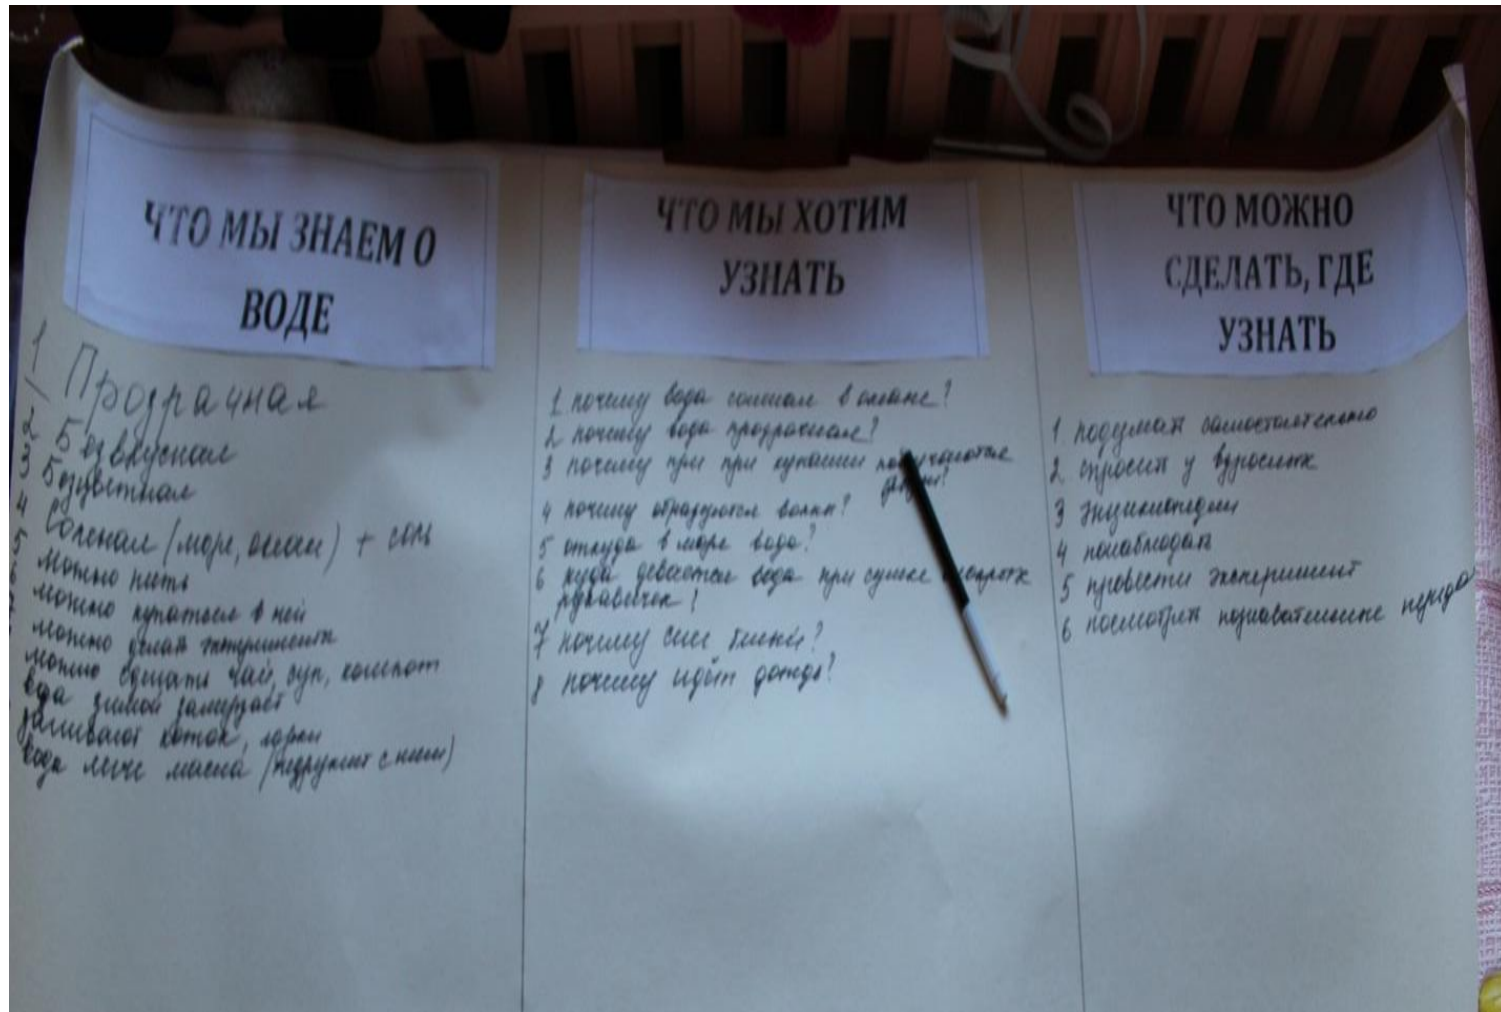 ЧТО МЫ ЗНАЕМ О
ВОДЕ
1 Прозрачная
2 Безвкусная
3 Безцветная
4 Соленая (море, океан) + соль
5 можно пить
6 можно купаться в ней
можно делать эксперименты
можно сделать чай, суп, компот
вода зимой замерзает
заливают каток, горки
вода легче масла (не дружит с ним)
ЧТО МЫ ХОТИМ
УЗНАТЬ
1 почему вода соленая в океане?
2 почему вода прозрачная?
3 почему при при купании получаются
4 почему образуются волны?
5 откуда в море вода?
6 куда девается вода при сушке
рукавичек?
7 почему снег белый?
8 почему идёт дождь?
ЧТО МОЖНО
СДЕЛАТЬ, ГДЕ
УЗНАТЬ
1 подумать самостоятельно
2 спросить у взрослых
3 энциклопедии
4 понаблюдать
5 провести эксперимент
6 посмотреть познавательные